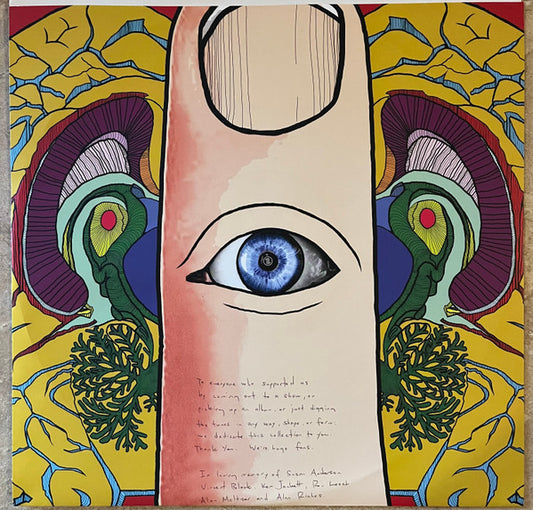 To everyone who supported us
by coming out to a show, or
picking up an album, or just digging
the tunes in any way, shape, or form,
we dedicate this collection to you.
Thank You. We're huge fans.
In loving memory of Susan Anderson
Vincent Black, Ken Jackett,
Alan Meltzer and Alan Riches